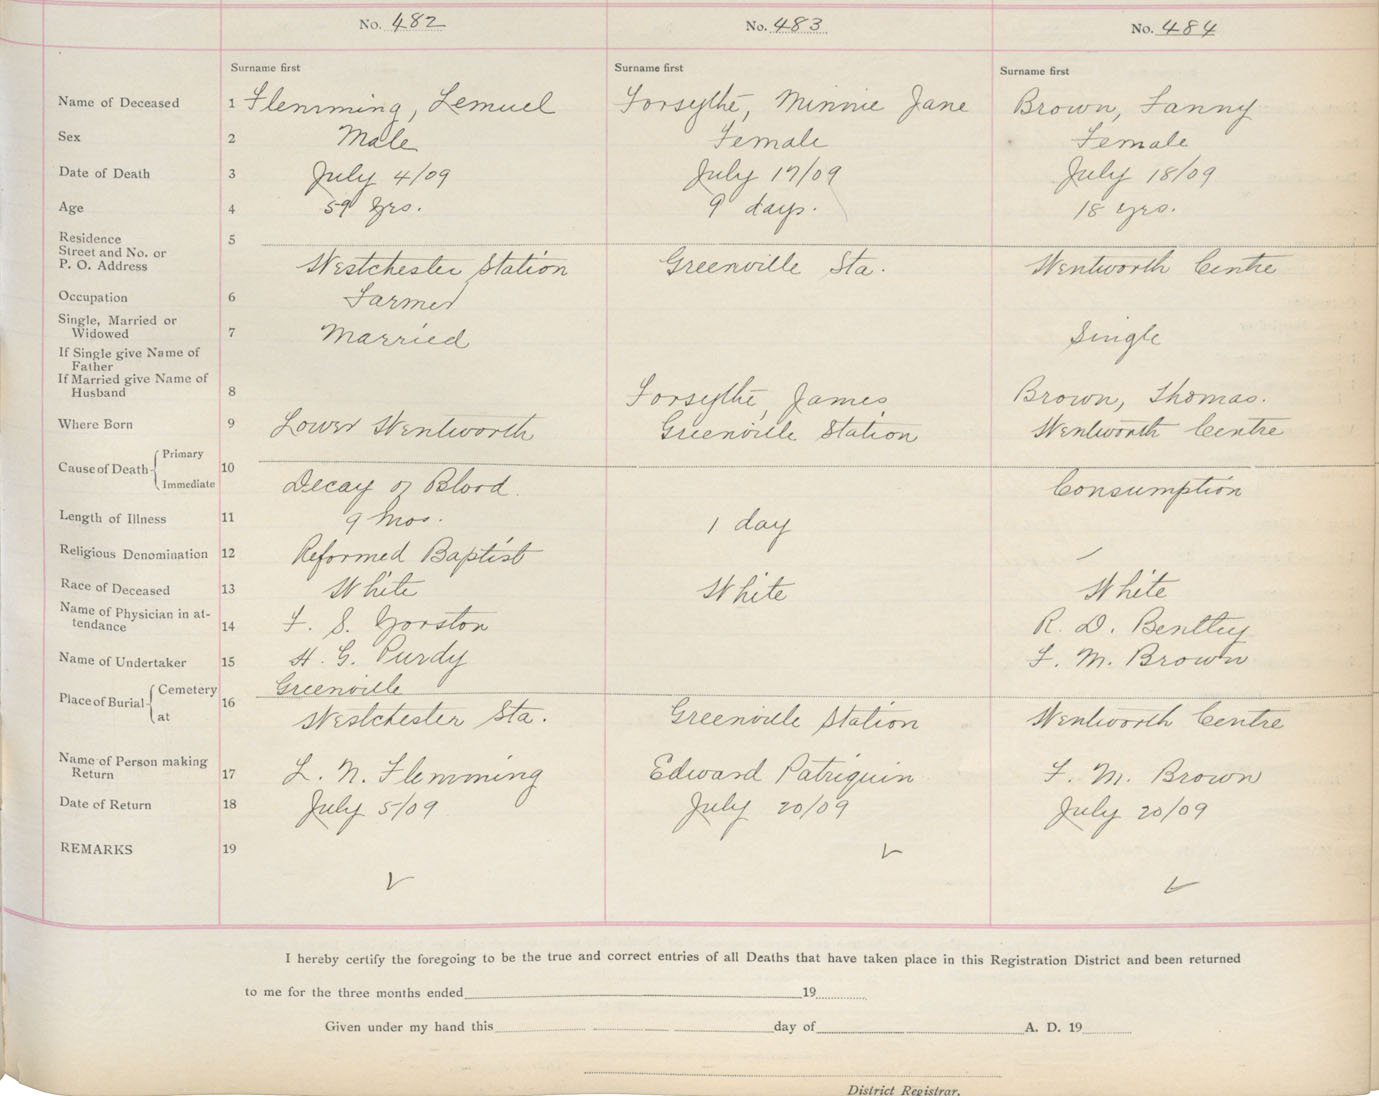 No. 482 No. 483 No. 484
Surname first Surname first Surname first
Name of Deceased 1 Flemming, Lemuel Forsythe, Minnie Jane Brown, Fanny
Sex 2 Male Female Female
Date of Death 3 July 4/09 July 17/09 July 18/09
Age 4 59 yrs. 9 days. 18 yrs.
Residence 5
Street and No. or
P. O. Address Westchester Station Greenville Sta. Wentworth Centre
Occupation 6 Farmer
Single, Married or
Widowed 7 Married Single
If Single give Name of
Father
If Married give Name of
Husband 8 Forsythe, James Brown, Thomas.
Where Born 9 Lower Wentworth Greenville Station Wentworth Centre
Cause of Death Primary 10
Immediate Decay of Blood. Consumption
Length of Illness 11 9 mos. 1 day
Religious Denomination 12 Reformed Baptist
Race of Deceased 13 White White White
Name of Physician in at-
tendance 14 F. S. Yorston R. D. Bentley
Name of Undertaker 15 H. G. Purdy F. M. Brown
Place of Burial Cemetery 16 Greenville
at Westchester Sta. Greenville Station Wentworth Centre
Name of Person making
Return 17 L. N. Flemming Edward Patriquin F. M. Brown
Date of Return 18 July 5/09 July 20/09 July 20/09
REMARKS 19
I hereby certify the foregoing to be the true and correct entries of all Deaths that have taken place in this Registration District and been returned
to me for the three months ended 19
Given under my hand this day of A. D. 19
District Registrar.